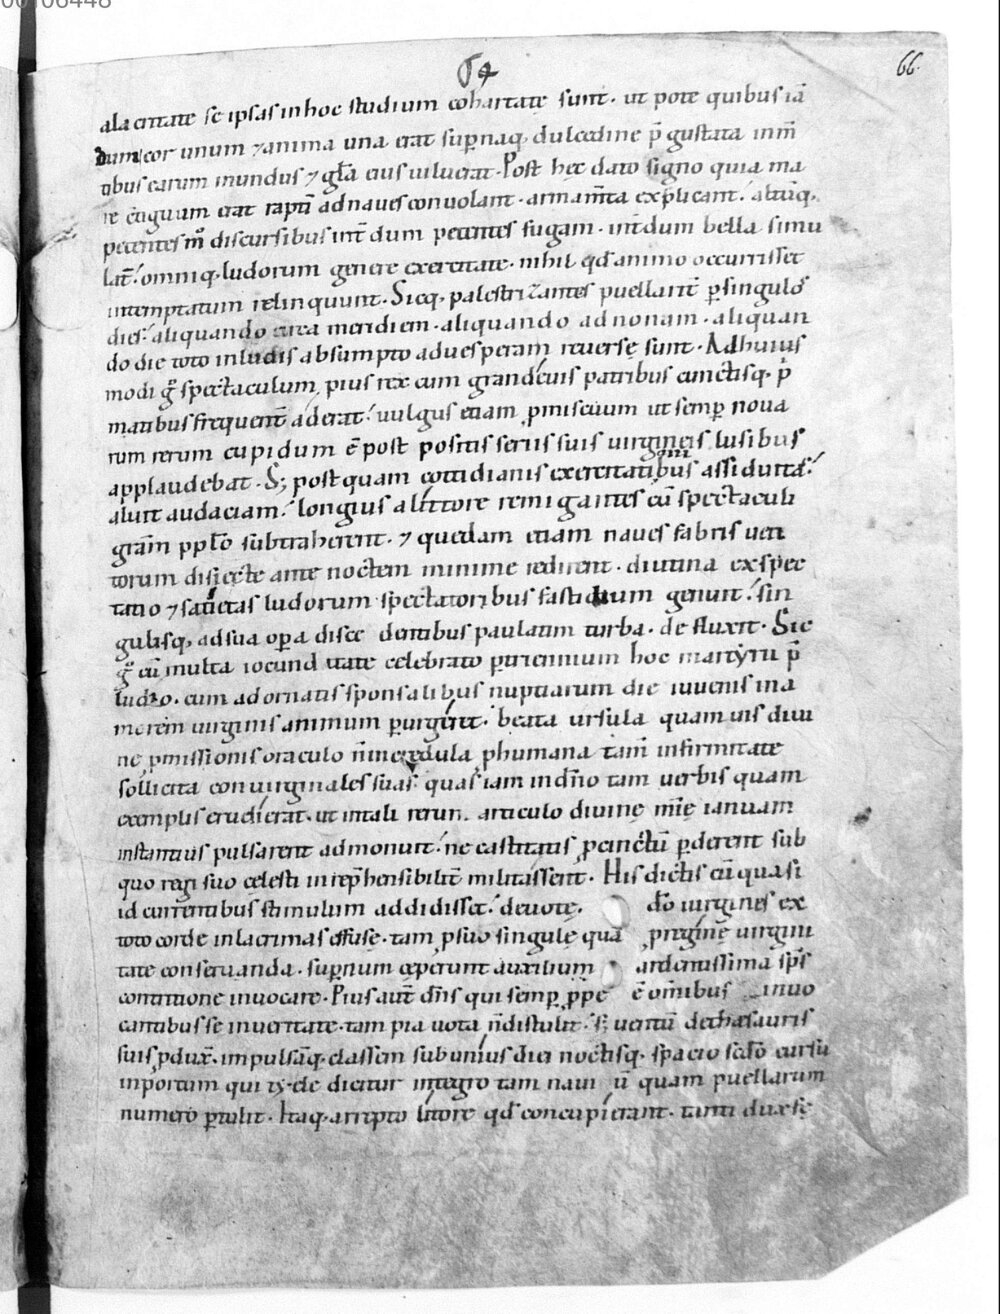 00106448
64
66
ala critate se ipsas in hoc studium cohartatę sunt · ut pote quibus iā
dum cor unum ⁊ anima una erat suꝑnaq; dulcedine p̄ gustata inm̄
tibus earum mundus ⁊ gl̄a eius uiluerat · Post hęc dato signo quia ma
re ciguum erat raptī ad naues conuolant · armam̄ta explicant · altūq;
petentes m̊ discursibus int̄ dum petentes fugam · int̄ dum bella simu
lat̄ · omniq; ludorum genere exercitatę · nihil qđ animo occurrisset
intemptatum relinquunt · Sicq; palestrizantes puellarit̄ ꝑ singulos
dies · aliquando circa meridiem · aliquando ad nonam · aliquan
do die toto in ludis absumpto ad uesperam reuersę sunt · Ad huius
modi g̊ spectaculum pius rex cum grandeuis patribus cunctisq; p̄
matibus frequent̄ aderat · uulgus etiam ꝓmiscuum ut semꝑ noua
rum rerum cupidum ē post positis seriis suis uirgineis lusibus
applaudebat · S; postquam cottidianis exercitationibus assiduitas
aluit audaciam · longius a littore remigantes cū spectaculi
grām pp̄lo subtraherent · ⁊ quedam etiam naues fabris uen
torum disiectę ante noctem minime redirent · diutina expec
tatio ⁊ satietas ludorum spectatoribus fastidium genuit · sin
gulisq; ad sua oꝑa disce dentibus paulatim turba · de fluxit · Sic
g̊ cū multa iocund itate celebrato ꝑ triennium hoc martyrii p̄
ludio · cum adornatis sponsalibus nuptiarum die iuuenis ina
morem uirginis animum ꝑurgeret · beata ursula quam uis diui
nę ꝓmissionis oraculo n̄ incredula ꝓ humana tam̄ infirmitate
sollicita conuirginales suas quas iam in dn̄o tam uerbis quam
exemplis erudierat · ut in tali rerum articulo diuinę mīę ianuam
instantius pulsarent admonuit · ne castitatis p̄cinctū ꝑderent sub
quo regi suo celesti inrep̄hensibilit̄ militassent · His dictis cū quasi
id currentibus stimulum addidisset · deuotę do uirgines ex
toto corde in lacrimas effusę · tam ꝓ suo singulę quā ꝓ reginę uirgini
tate conseruanda · suꝑnum ceperunt auxilium ardentissima sp̄s
contritione inuocare · Pius aut̄ dn̄s qui semꝑ ꝓpe ē om̄ibus inuo
cantibus se in ueritate · tam pia uota n̄ distulit · s; uentū de thesauris
suis ꝓduxit · impulsāq; classem sub unius diei noctisq; spacio scd̄o cursu
in portum qui tyele dicitur integro tam naui ū quam puellarum
numero ꝑtulit · Itaq; arrepto litore qđ concupierant · tanti duxsę